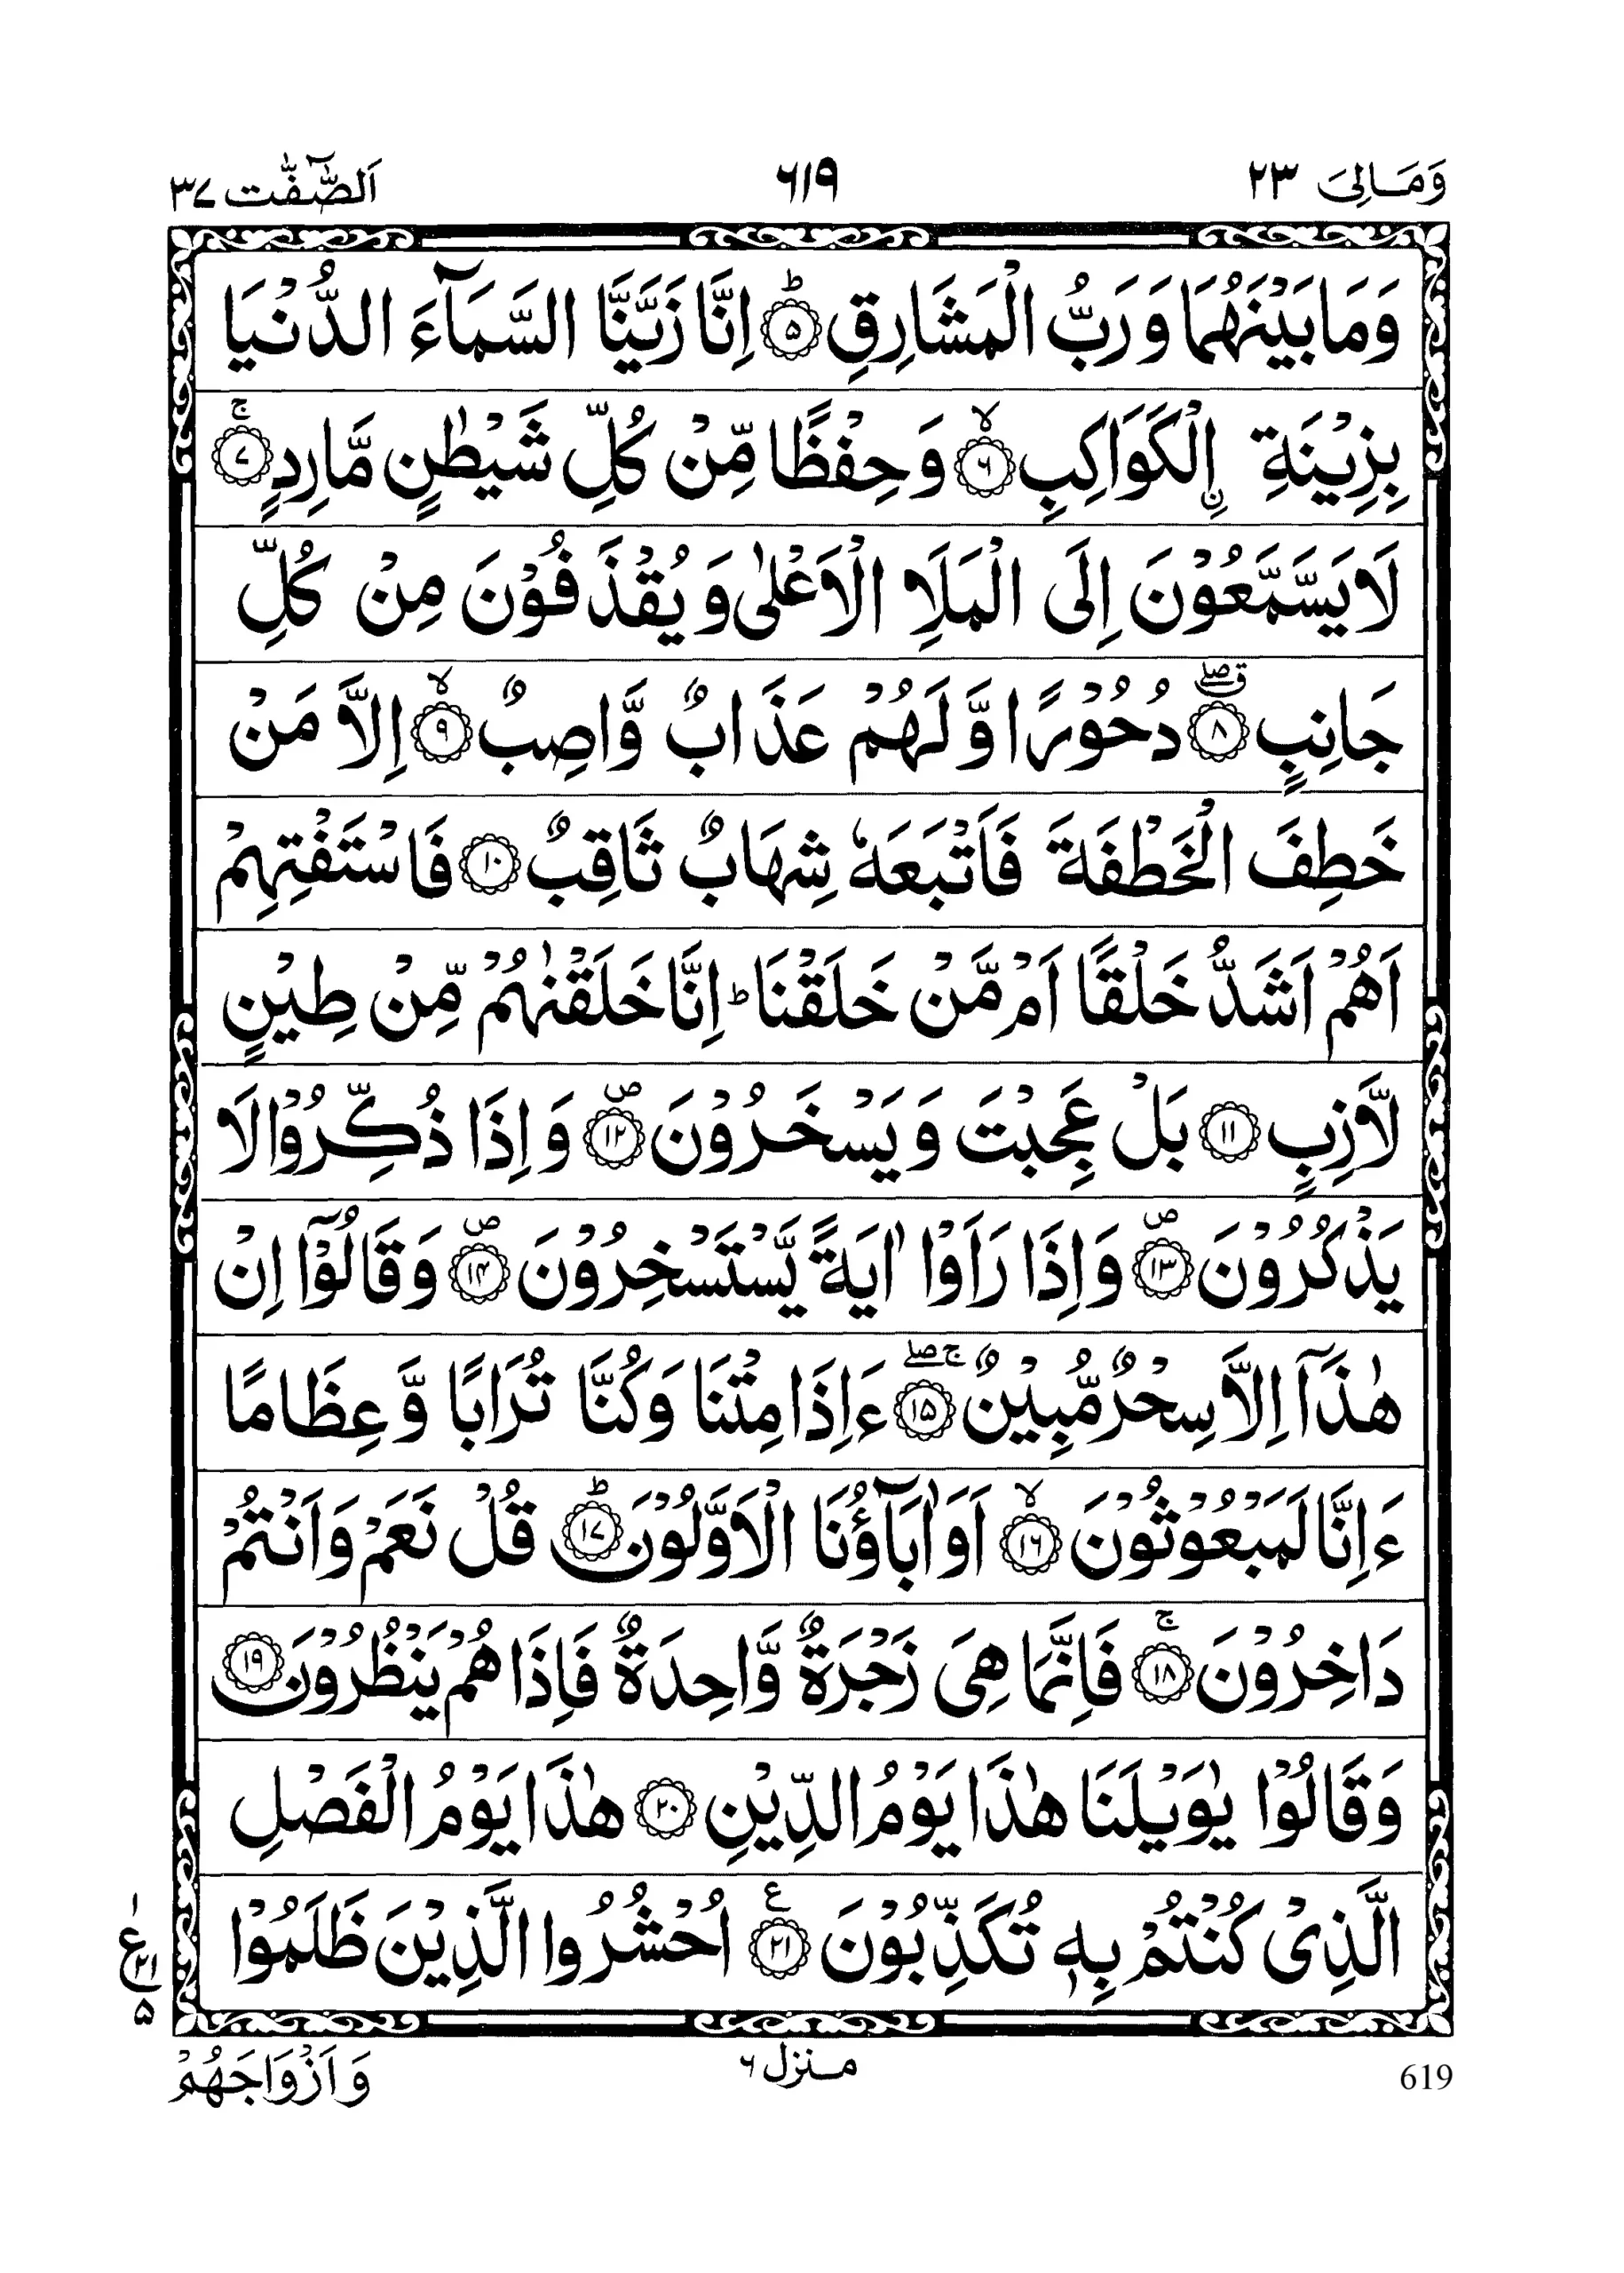 وَمَـالِیَ ٢٣ ٦١٩ اَلصّٰٓفّٰت ٣٧
وَمَا بَيْنَهُمَا وَرَبُّ الْمَشَارِقِ ۟ؕ ٥ اِنَّا زَيَّنَّا السَّمَآءَ الدُّنْيَا
بِزِيْنَةِ ِۨالْكَوَاكِبِ ۙ ٦ وَحِفْظًا مِّنْ كُلِّ شَيْطٰنٍ مَّارِدٍ ۚ ٧
لَا يَسَّمَّعُوْنَ اِلَى الْمَلَاِ الْاَعْلٰى وَيُقْذَفُوْنَ مِنْ كُلِّ
جَانِبٍ ٨ ۖق دُحُوْرًا وَّلَهُمْ عَذَابٌ وَّاصِبٌ ۙ ٩ اِلَّا مَنْ
خَطِفَ الْخَطْفَةَ فَاَتْبَعَهٗ شِهَابٌ ثَاقِبٌ ١٠ فَاسْتَفْتِهِمْ
اَهُمْ اَشَدُّ خَلْقًا اَمْ مَّنْ خَلَقْنَا ؕ اِنَّا خَلَقْنٰهُمْ مِّنْ طِيْنٍ
لَّازِبٍ ١١ بَلْ عَجِبْتَ وَيَسْخَرُوْنَ ١٢ ص وَاِذَا ذُكِّرُوْا لَا
يَذْكُرُوْنَ ١٣ ص وَاِذَا رَاَوْا اٰيَةً يَّسْتَسْخِرُوْنَ ١٤ ص وَقَالُوْٓا اِنْ
هٰذَآ اِلَّا سِحْرٌ مُّبِيْنٌ ١٥ ج صلے ءَاِذَا مِتْنَا وَكُنَّا تُرَابًا وَّعِظَامًا
ءَاِنَّا لَمَبْعُوْثُوْنَ ۙ ١٦ اَوَاٰبَآؤُنَا الْاَوَّلُوْنَ ؕ ١٧ قُلْ نَعَمْ وَاَنْتُمْ
دَاخِرُوْنَ ۚ ١٨ فَاِنَّمَا هِىَ زَجْرَةٌ وَّاحِدَةٌ فَاِذَا هُمْ يَنْظُرُوْنَ ١٩
وَقَالُوْا يٰوَيْلَنَا هٰذَا يَوْمُ الدِّيْنِ ٢٠ هٰذَا يَوْمُ الْفَصْلِ
الَّذِىْ كُنْتُمْ بِهٖ تُكَذِّبُوْنَ ٢١ ع اُحْشُرُوا الَّذِيْنَ ظَلَمُوْا
١ ع ٢١ ٥
وَاَزْوَاجَهُمْ
مـنزل ٦
619